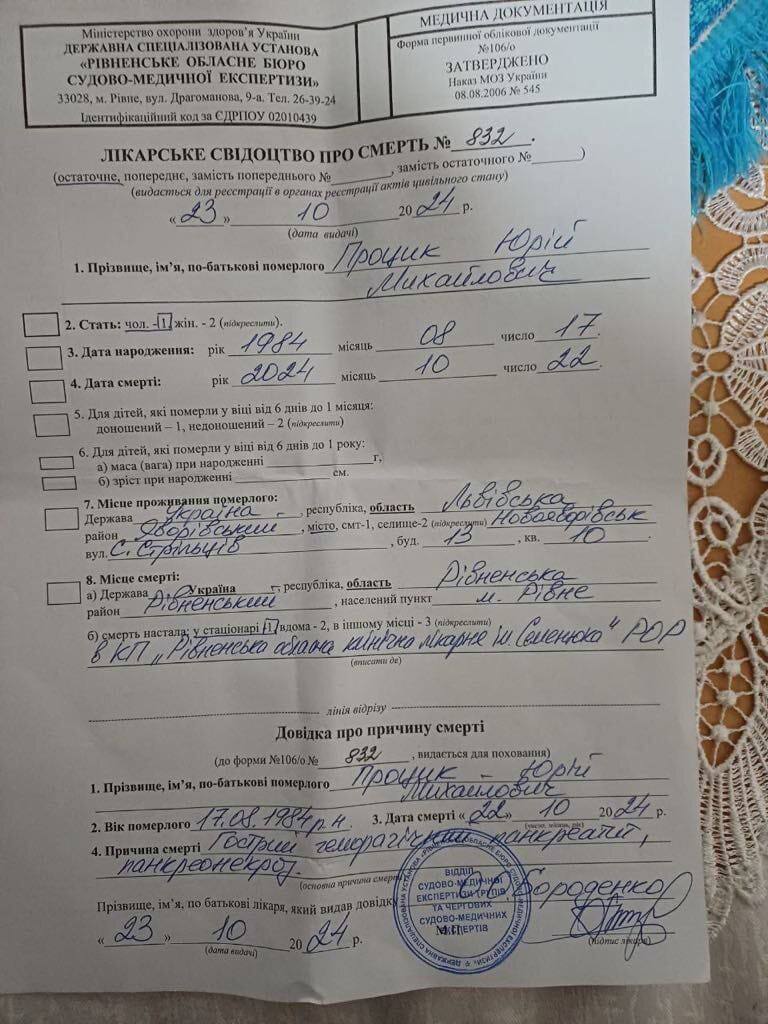 Міністерство охорони здоров'я України
ДЕРЖАВНА СПЕЦІАЛІЗОВАНА УСТАНОВА
«РІВНЕНСЬКЕ ОБЛАСНЕ БЮРО
СУДОВО-МЕДИЧНОЇ ЕКСПЕРТИЗИ»
33028, м. Рівне, вул. Драгоманова, 9-а. Тел. 26-39-24
Ідентифікаційний код за ЄДРПОУ 02010439
МЕДИЧНА ДОКУМЕНТАЦІЯ
Форма первинної облікової документації
№106/о
ЗАТВЕРДЖЕНО
Наказ МОЗ України
08.08.2006 № 545
ЛІКАРСЬКЕ СВІДОЦТВО ПРО СМЕРТЬ № 832.
(остаточне, попереднє, замість попереднього №________, замість остаточного №________)
(видається для реєстрації в органах реєстрації актів цивільного стану)
«23» 10 2024 р.
(дата видачі)
1. Прізвище, ім'я, по-батькові померлого Процик Юрій
Михайлович
2. Стать: чол. -1, жін. - 2 (підкреслити).
3. Дата народження: рік 1984 місяць 08 число 17.
4. Дата смерті: рік 2024 місяць 10 число 22.
5. Для дітей, які померли у віці від 6 днів до 1 місяця:
доношений – 1, недоношений – 2 (підкреслити)
6. Для дітей, які померли у віці від 6 днів до 1 року:
а) маса (вага) при народженні ________ г,
б) зріст при народженні ________ см.
7. Місце проживання померлого:
Держава Україна, республіка, область Львівська
район Яворівський, місто, смт-1, селище-2 (підкреслити) Новояворівськ
вул. С. Стрільців, буд. 13, кв. 10.
8. Місце смерті:
а) Держава Україна, республіка, область Рівненська
район Рівненський, населений пункт м. Рівне
б) смерть настала: у стаціонарі 1, вдома - 2, в іншому місці - 3 (підкреслити)
в КП „Рівненська обласна клінічна лікарне ім. Семенюка" РОР
(вписати де)
лінія відрізу
Довідка про причину смерті
(до форми №106/о № 832, видається для поховання)
1. Прізвище, ім'я, по-батькові померлого Процик – Юрій
Михайлович
2. Вік померлого 17.08.1984 р.н. 3. Дата смерті «22» 10 2024 р.
(число, місяць, рік)
4. Причина смерті Гострий геморагічний панкреатит,
панкреонекроз.
(основна причина смерті)
Прізвище, ім'я, по батькові лікаря, який видав довідку Бороденко
«23» 10 2024 р.
(дата видачі)
М.П.
(підпис лікаря)
ВІДДІЛ
СУДОВО-МЕДИЧНОЇ
ЕКСПЕРТИЗИ ТРУПІВ
ТА ЧЕРГОВИХ
СУДОВО-МЕДИЧНИХ
ЕКСПЕРТІВ